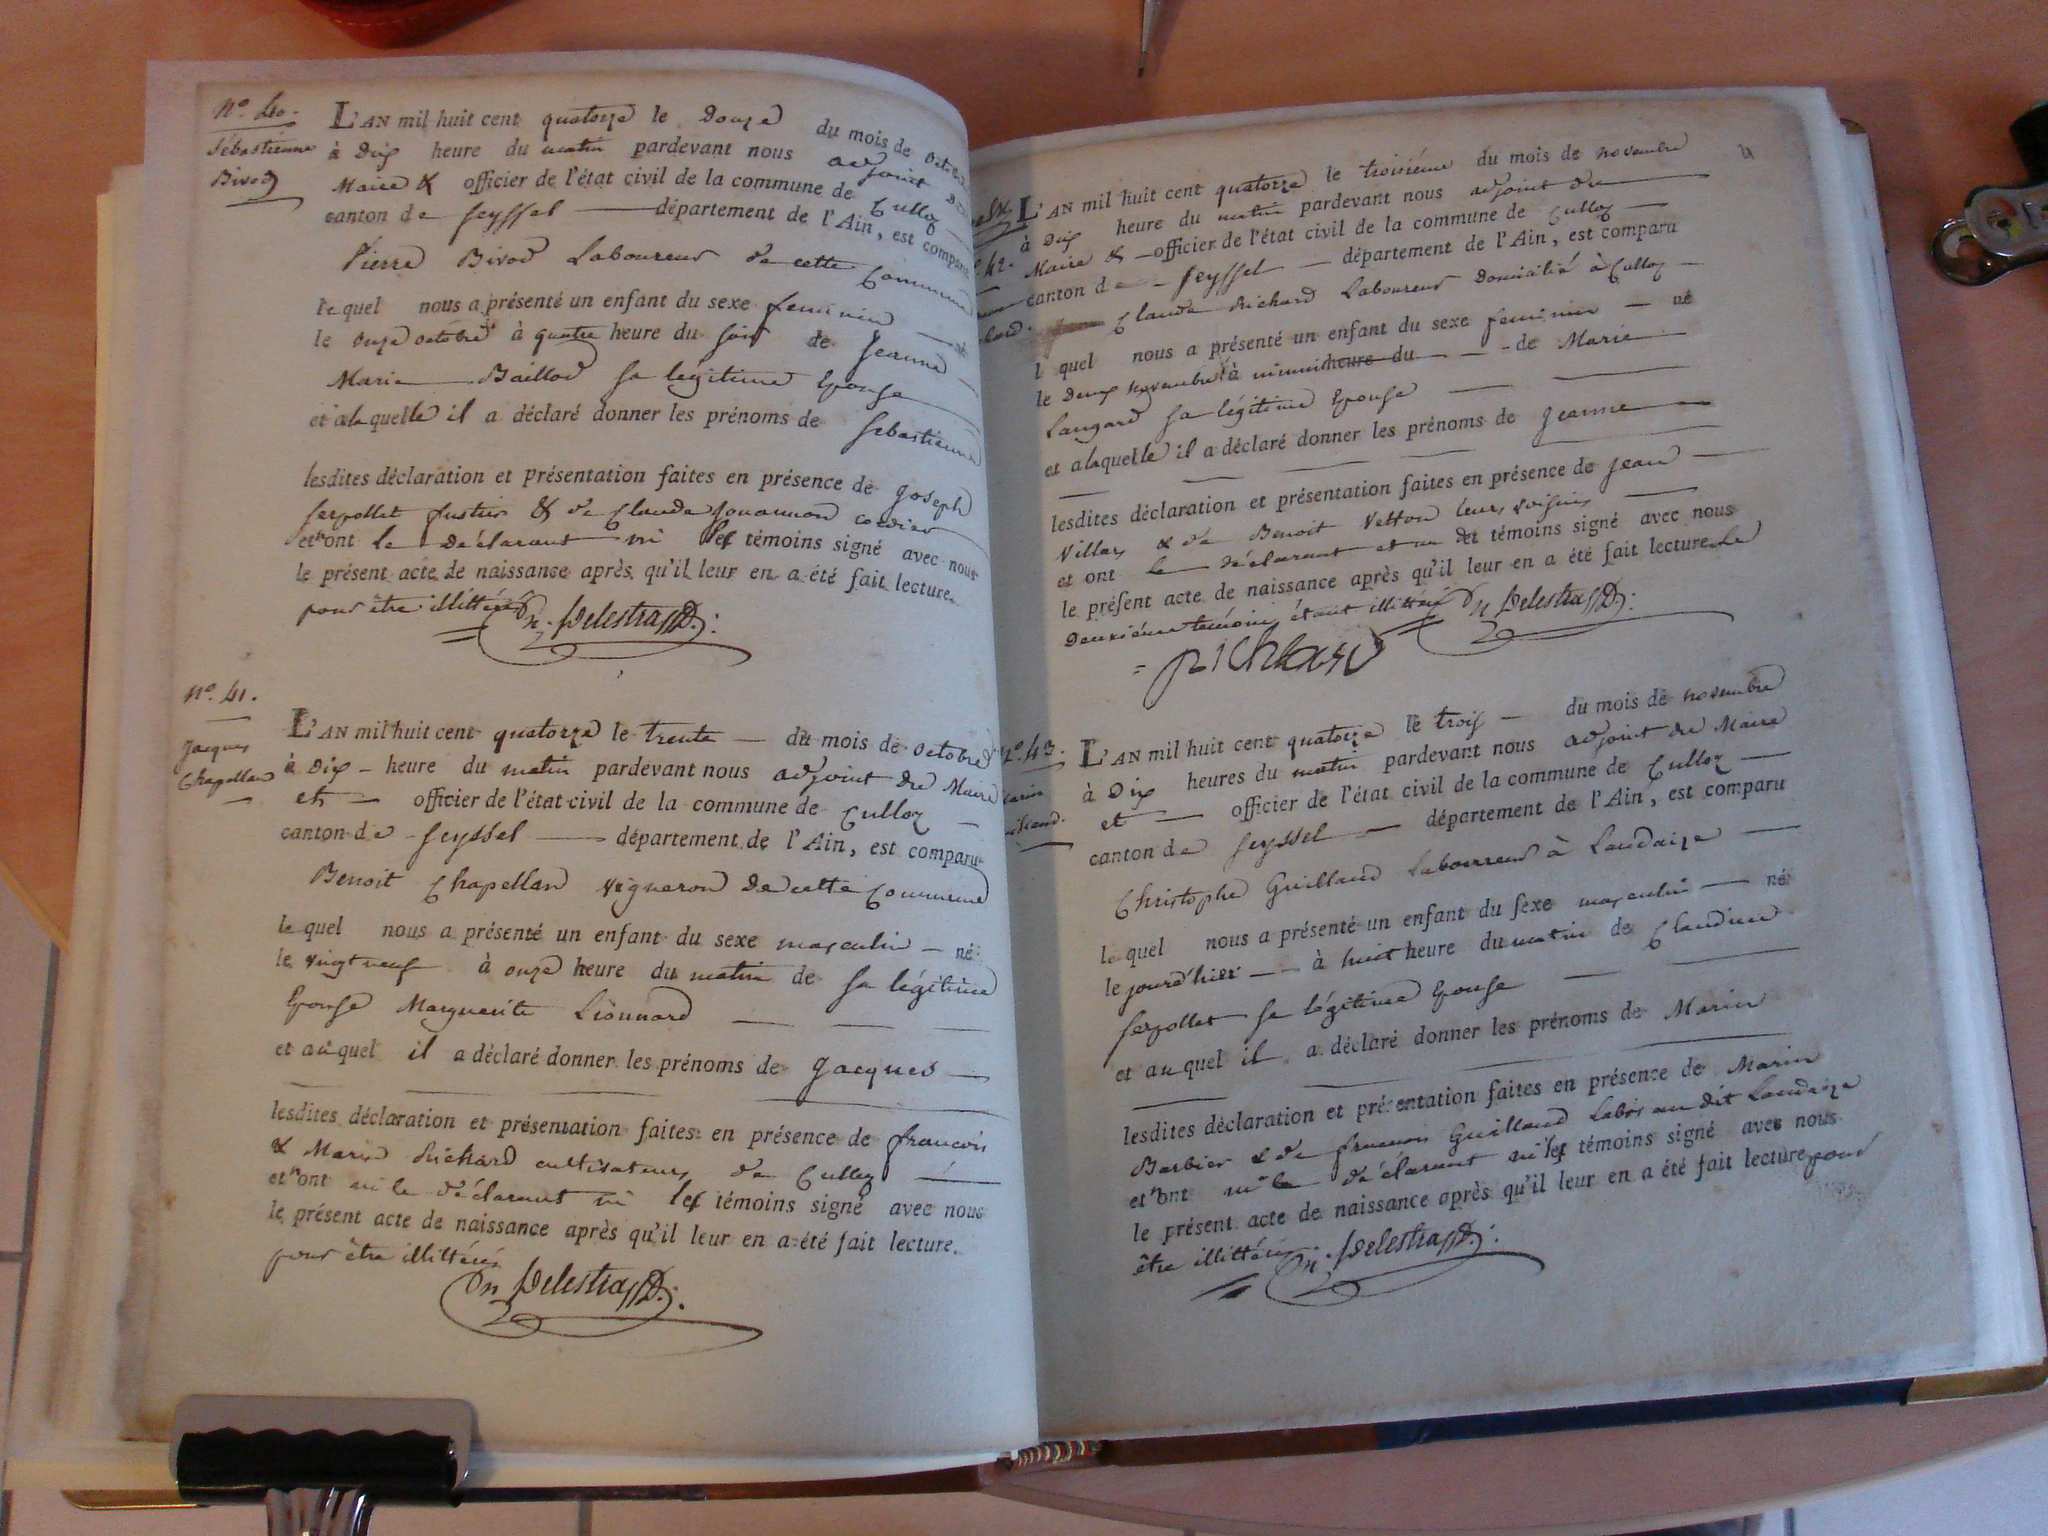 N.º 40.
Sébastienne
Bivod
L'AN mil huit cent quatorze le Douze du mois de octobre
à Dix heure du matin pardevant nous adjoint De
Maire & officier de l'état civil de la commune de Culloz
canton de Seyssel département de l'Ain, est comparu
Pierre Bivod Laboureur de cette Commune
lequel nous a présenté un enfant du sexe feminin né
le onze octobre à quatre heure du soir de Jeanne
Marie Baillod sa légitime Epouse
et a laquelle il a déclaré donner les prénoms de Sebastienne
lesdites déclaration et présentation faites en présence de Joseph
Serpollet fustier & de Claude Jouannon cordier
et n'ont le déclarant ni les témoins signé avec nous
le présent acte de naissance après qu'il leur en a été fait lecture.
pour être illittérés Dn. Delestra
N.º 41.
Jacques
Chapellan
L'AN mil huit cent quatorze le trente du mois de octobre
à Dix heure du matin pardevant nous adjoint du Maire
et officier de l'état civil de la commune de Culloz
canton de Seyssel département de l'Ain, est comparu
Benoit Chapellan vigneron de cette Commune
lequel nous a présenté un enfant du sexe masculin né
le vingt neuf à onze heure du matin de sa légitime
Epouse Marguerite Lionnard
et auquel il a déclaré donner les prénoms de Jacques
lesdites déclaration et présentation faites en présence de francois
& Marin Richard cultivateurs de Culloz
et n'ont ni le déclarant ni les témoins signé avec nous
le présent acte de naissance après qu'il leur en a été fait lecture.
pour être illittérés
Dn Delestra
4
42.
L'AN mil huit cent quatorze le troisième du mois de novembre
à Dix heure du matin pardevant nous adjoint du
Maire & officier de l'état civil de la commune de Culloz
canton de Seyssel département de l'Ain, est comparu
Claude Richard Laboureur domicilié à Culloz
lequel nous a présenté un enfant du sexe feminin né
le deux novembre à minuit heure du de Marie
Laugard sa légitime Epouse
et a laquelle il a déclaré donner les prénoms de Jeanne
lesdites déclaration et présentation faites en présence de Jean
Villar & de Benoit Vetton leurs voisins
et ont le déclarant et un det témoins signé avec nous
le présent acte de naissance après qu'il leur en a été fait lecture Le
deuxième temoin étant illittéré Dn Delestra
Richard
N.º 43.
L'AN mil huit cent quatorze le trois du mois de novembre
à Dix heures du matin pardevant nous adjoint du Maire
et officier de l'état civil de la commune de Culloz
canton de Seyssel département de l'Ain, est comparu
Christophe Guilland Laboureur à Landaize
lequel nous a présenté un enfant du sexe masculin né
le jourd'hier à huit heure du matin de Claudine
Serpollet sa légitime Epouse
et auquel il a déclaré donner les prénoms de Marin
lesdites déclaration et présentation faites en présence de Marin
Barbier & de francois Guilland Labrs au dit Landaize
et n'ont ni le déclarant ni les témoins signé avec nous
le présent acte de naissance après qu'il leur en a été fait lecture pour
être illittérés Dn. Delestra